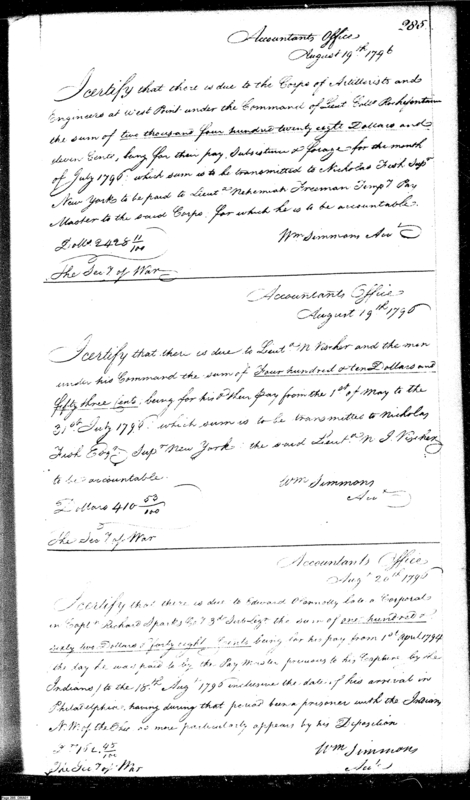 285
Accountants Office
August 19th 1796
I certify that there is due to the Corps of Artillerists and
Engineers at West Point under the Command of Lieut Coll Rochfontain
the sum of two thousand four hundred twenty eight Dollars and
eleven Cents, being for their pay, Subsistence & forage for the month
of July 1796 which sum is to be transmitted to Nicholas Fish Supr
New York to be paid to Lieut Nehemiah Freeman Tempy Pay
Master to the said Corps, for which he is to be accountable.
Dolls 2428 11/100
Wm Simmons Acct
The Secy of War
Accountants Office
August 19th 1796
I certify that there is due to Lieut N Visscher and the men
under his Command the sum of Four hundred & ten Dollars and
fifty three Cents, being for his & their Pay from the 1st of May to the
31st July 1796 which sum is to be transmitted to Nicholas
Fish Esqr Supr New York the said Lieut N J Visscher
to be accountable.
Dollars 410 53/100
Wm Simmons
Acct
The Secy of War
Accountants Office
Augt 20th 1796
I certify that there is due to Edward O'Connolly late a Corporal
in Capt Richard Sparks Co 3rd Sub Legn the sum of one hundred &
sixty two Dollars & forty eight Cents being for his pay from 1st April 1794
the day he was paid to by the Pay Master previous to his Capture by the
Indians) to the 18th Augt 1796 inclusive the date of his arrival in
Philadelphia, having during that period been a prisoner with the Indians
N.W. of the Ohio as more particularly appears by his Deposition
Ds 162 48/100
Wm Simmons
Acct
The Secy of War